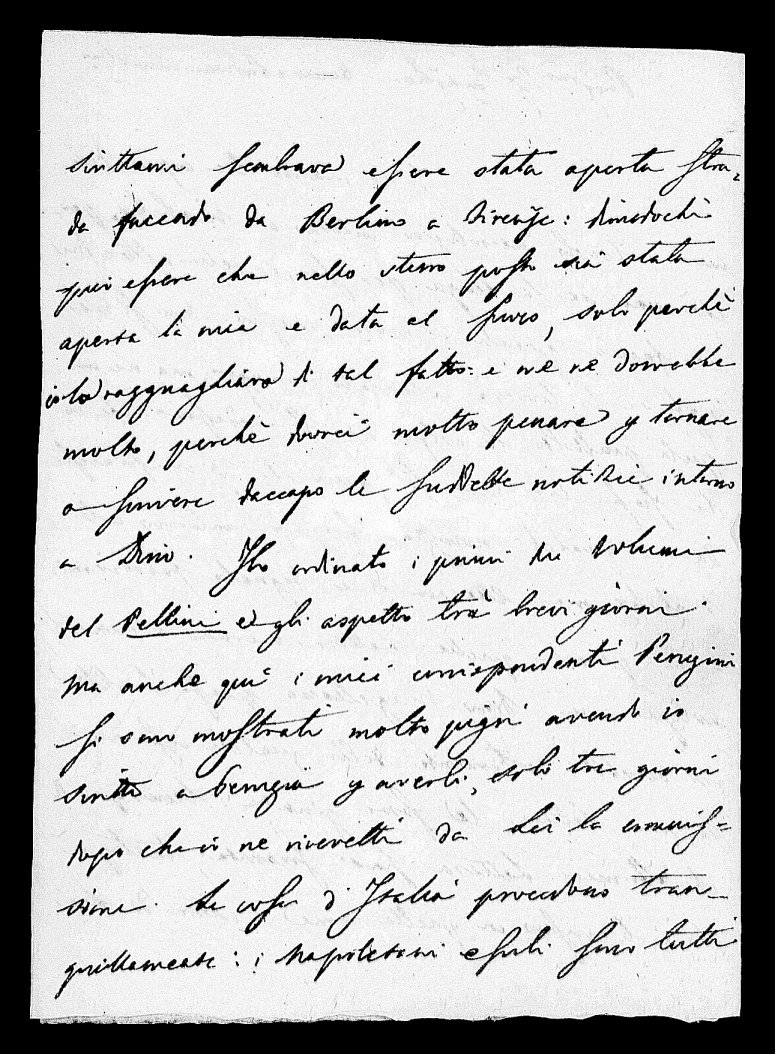 scrittami sembrava essere stata aperta stra-
da facendo da Berlino a Firenze: dimodochè
può essere che nello stesso posto sia stata
aperta la mia e data al fuoco, solo perchè
io la ragguagliava di tal fatto: e me ne dorrebbe
molto, perchè dovrei molto penare p tornare
a scrivere daccapo le suddette notizie intorno
a Dino. Ho ordinato i primi due volumi
del Pellini e gli aspetto trà brevi giorni.
Ma anche quì i miei corrispondenti Perugini
si sono mostrati molto pigri avendo io
scritto a Perugia p averli, solo tre giorni
dopo che io ne ricevetti da Lei la commis=
sione. Le cose d'Italia procedono tran-
quillamente: i Napoletani esuli sono tutti